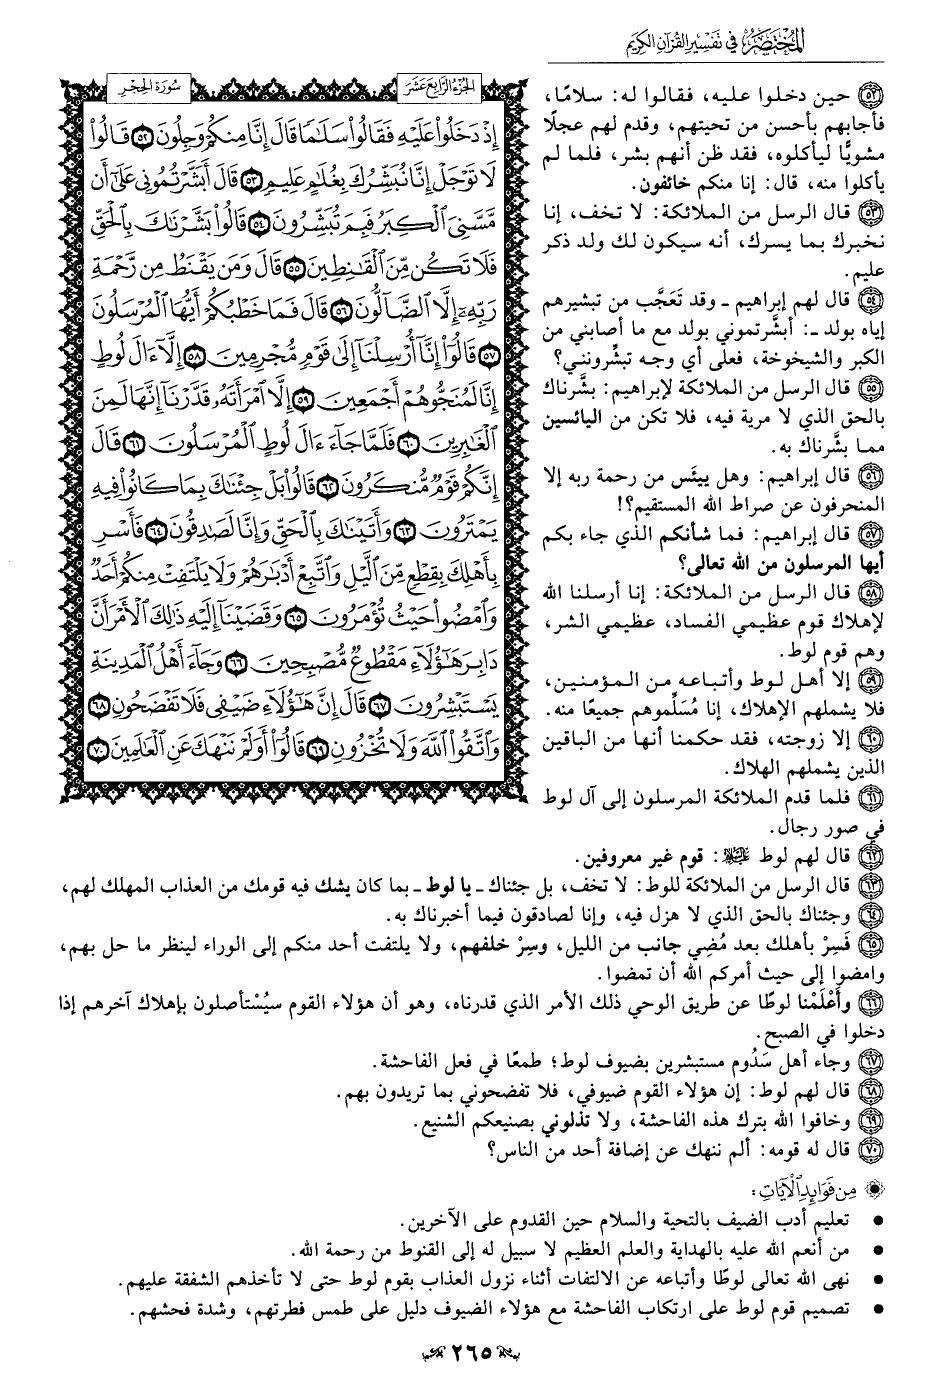 المختصر في تفسير القرآن الكريم
سورة الحجر
الجزء الرابع عشر
إِذْ دَخَلُوا۟ عَلَيْهِ فَقَالُوا۟ سَلَـٰمًا قَالَ إِنَّا مِنكُمْ وَجِلُونَ ٥٢ قَالُوا۟
لَا تَوْجَلْ إِنَّا نُبَشِّرُكَ بِغُلَـٰمٍ عَلِيمٍ ٥٣ قَالَ أَبَشَّرْتُمُونِى عَلَىٰٓ أَن
مَّسَّنِىَ ٱلْكِبَرُ فَبِمَ تُبَشِّرُونَ ٥٤ قَالُوا۟ بَشَّرْنَـٰكَ بِٱلْحَقِّ
فَلَا تَكُن مِّنَ ٱلْقَـٰنِطِينَ ٥٥ قَالَ وَمَن يَقْنَطُ مِن رَّحْمَةِ
رَبِّهِۦٓ إِلَّا ٱلضَّآلُّونَ ٥٦ قَالَ فَمَا خَطْبُكُمْ أَيُّهَا ٱلْمُرْسَلُونَ
٥٧ قَالُوٓا۟ إِنَّآ أُرْسِلْنَآ إِلَىٰ قَوْمٍ مُّجْرِمِينَ ٥٨ إِلَّآ ءَالَ لُوطٍ
إِنَّا لَمُنَجُّوهُمْ أَجْمَعِينَ ٥٩ إِلَّا ٱمْرَأَتَهُۥ قَدَّرْنَآ إِنَّهَا لَمِنَ
ٱلْغَـٰبِرِينَ ٦٠ فَلَمَّا جَآءَ ءَالَ لُوطٍ ٱلْمُرْسَلُونَ ٦١ قَالَ
إِنَّكُمْ قَوْمٌ مُّنكَرُونَ ٦٢ قَالُوا۟ بَلْ جِئْنَـٰكَ بِمَا كَانُوا۟ فِيهِ
يَمْتَرُونَ ٦٣ وَأَتَيْنَـٰكَ بِٱلْحَقِّ وَإِنَّا لَصَـٰدِقُونَ ٦٤ فَأَسْرِ
بِأَهْلِكَ بِقِطْعٍ مِّنَ ٱلَّيْلِ وَٱتَّبِعْ أَدْبَـٰرَهُمْ وَلَا يَلْتَفِتْ مِنكُمْ أَحَدٌ
وَٱمْضُوا۟ حَيْثُ تُؤْمَرُونَ ٦٥ وَقَضَيْنَآ إِلَيْهِ ذَٰلِكَ ٱلْأَمْرَ أَنَّ
دَابِرَ هَـٰٓؤُلَآءِ مَقْطُوعٌ مُّصْبِحِينَ ٦٦ وَجَآءَ أَهْلُ ٱلْمَدِينَةِ
يَسْتَبْشِرُونَ ٦٧ قَالَ إِنَّ هَـٰٓؤُلَآءِ ضَيْفِى فَلَا تَفْضَحُونِ ٦٨
وَٱتَّقُوا۟ ٱللَّهَ وَلَا تُخْزُونِ ٦٩ قَالُوٓا۟ أَوَلَمْ نَنْهَكَ عَنِ ٱلْعَـٰلَمِينَ ٧٠
٥٢ حين دخلوا عليه، فقالوا له: سلامًا،
فأجابهم بأحسن من تحيتهم، وقدم لهم عجلًا
مشويًّا ليأكلوه، فقد ظن أنهم بشر، فلما لم
يأكلوا منه، قال: إنا منكم خائفون.
٥٣ قال الرسل من الملائكة: لا تخف، إنا
نخبرك بما يسرك، أنه سيكون لك ولد ذكر
عليم.
٥٤ قال لهم إبراهيم ـ وقد تَعَجَّب من تبشيرهم
إياه بولد ـ: أبشَّرتموني بولد مع ما أصابني من
الكبر والشيخوخة، فعلى أي وجه تبشِّرونني؟
٥٥ قال الرسل من الملائكة لإبراهيم: بشَّرناك
بالحق الذي لا مرية فيه، فلا تكن من اليائسين
مما بشَّرناك به.
٥٦ قال إبراهيم: وهل ييئَس من رحمة ربه إلا
المنحرفون عن صراط الله المستقيم؟!
٥٧ قال إبراهيم: فما شأنكم الذي جاء بكم
أيها المرسلون من الله تعالى؟
٥٨ قال الرسل من الملائكة: إنا أرسلنا الله
لإهلاك قوم عظيمي الفساد، عظيمي الشر،
وهم قوم لوط.
٥٩ إلا أهل لوط وأتباعه من المؤمنين،
فلا يشملهم الإهلاك، إنا مُسَلِّموهم جميعًا منه.
٦٠ إلا زوجته، فقد حكمنا أنها من الباقين
الذين يشملهم الهلاك.
٦١ فلما قدم الملائكة المرسلون إلى آل لوط
في صور رجال.
٦٢ قال لهم لوط عليه السلام: قوم غير معروفين.
٦٣ قال الرسل من الملائكة للوط: لا تخف، بل جئناك ـ يا لوط ـ بما كان يشك فيه قومك من العذاب المهلك لهم،
٦٤ وجئناك بالحق الذي لا هزل فيه، وإنا لصادقون فيما أخبرناك به.
٦٥ فَسِرْ بأهلك بعد مُضِي جانب من الليل، وسِرْ خلفهم، ولا يلتفت أحد منكم إلى الوراء لينظر ما حل بهم،
وامضوا إلى حيث أمركم الله أن تمضوا.
٦٦ وأَعْلَمْنا لوطًا عن طريق الوحي ذلك الأمر الذي قدرناه، وهو أن هؤلاء القوم سيُسْتأصلون بإهلاك آخرهم إذا
دخلوا في الصبح.
٦٧ وجاء أهل سَدُوم مستبشرين بضيوف لوط؛ طمعًا في فعل الفاحشة.
٦٨ قال لهم لوط: إن هؤلاء القوم ضيوفي، فلا تفضحوني بما تريدون بهم.
٦٩ وخافوا الله بترك هذه الفاحشة، ولا تذلوني بصنيعكم الشنيع.
٧٠ قال له قومه: ألم ننهك عن إضافة أحد من الناس؟
من فوائد الآيات:
• تعليم أدب الضيف بالتحية والسلام حين القدوم على الآخرين.
• من أنعم الله عليه بالهداية والعلم العظيم لا سبيل له إلى القنوط من رحمة الله.
• نهى الله تعالى لوطًا وأتباعه عن الالتفات أثناء نزول العذاب بقوم لوط حتى لا تأخذهم الشفقة عليهم.
• تصميم قوم لوط على ارتكاب الفاحشة مع هؤلاء الضيوف دليل على طمس فطرتهم، وشدة فحشهم.
٢٦٥